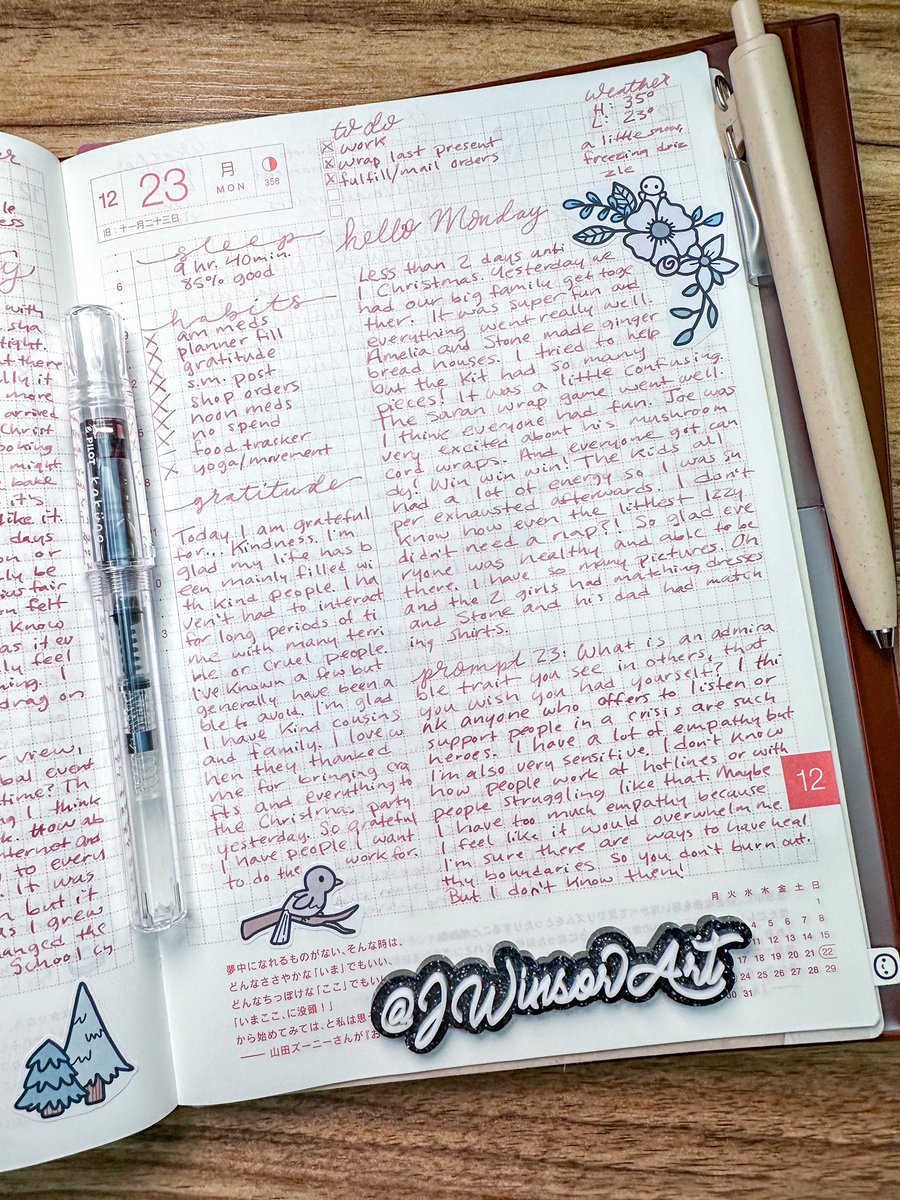 with
sha
tight.
at there
ally it
more
arrived
Christ
ooking
might
bake
it's
like it.
days
on or
ly be
ious fair
rn felt
Know
as it ev
ly feel
ning. I
drag on
r view,
bal event
time? Th
ng I think
k. How ab
nternet and
d to every
. It was
n but it
as I grew
hanged the
School cy
PILOT
12
23
月
MON
358
旧:十一月二十三日
to do
x work
x wrap last present
x fulfill/mail orders
weather
H: 35°
L: 23°
a little snow,
freezing driz
zle
sleep
9 hr. 40min.
85% good
habits
am meds
planner fill
gratitude
s.m. post
shop orders
noon meds
no spend
food tracker
yoga/movement
gratitude
Today I am grateful
for... Kindness. I'm
glad my life has b
een mainly filled wi
th kind people. I ha
ven't had to interact
for long periods of ti
me with many terri
ble or cruel people.
I've known a few but
generally have been a
ble to avoid. I'm glad
I have kind cousins
and family. I love w
hen they thanked
me for bringing cra
fts and everything to
the Christmas party
yesterday. So grateful
I have people I want
to do the work for.
hello Monday
Less than 2 days until
Christmas. Yesterday we
had our big family get toge
ther. It was super fun and
everything went really well.
Amelia and Stone made ginger
bread houses. I tried to help
but the kit had so many
pieces! It was a little confusing.
The Saran wrap game went well.
I think everyone had fun. Joe was
very excited about his mushroom
cord wraps. And everyone got can
dy! Win win win! The kids all
had a lot of energy so I was su
per exhausted afterwards. I don't
know how even the littlest Izzy
didn't need a nap?! So glad eve
ryone was healthy and able to be
there. I have so many pictures. Oh
and the 2 girls had matching dresses
and Stone and his dad had match
ing shirts.
prompt 23: What is an admira
ble trait you see in others, that
you wish you had yourself? I thi
nk anyone who offers to listen or
support people in a crisis are such
heroes. I have a lot of empathy but
I'm also very sensitive. I don't know
how people work at hotlines or with
people struggling like that. Maybe
I have too much empathy because
I feel like it would overwhelm me.
I'm sure there are ways to have heal
thy boundaries so you don't burn out.
But I don't know them!
12
夢中になれるものがない、そんな時は、
どんなささやかな「いま」でもいい、
どんなちっぽけな「ここ」でもいい
「いまここ、に没頭!」
から始めてみては、と私は思
——山田ズーニーさんが『お
月 火 水 木 金 土 日
1
4 5 6 7 8
11 12 13 14 15
18 19 20 21 22
24 25 26 27 28 29
30 31
@JWinsorArt